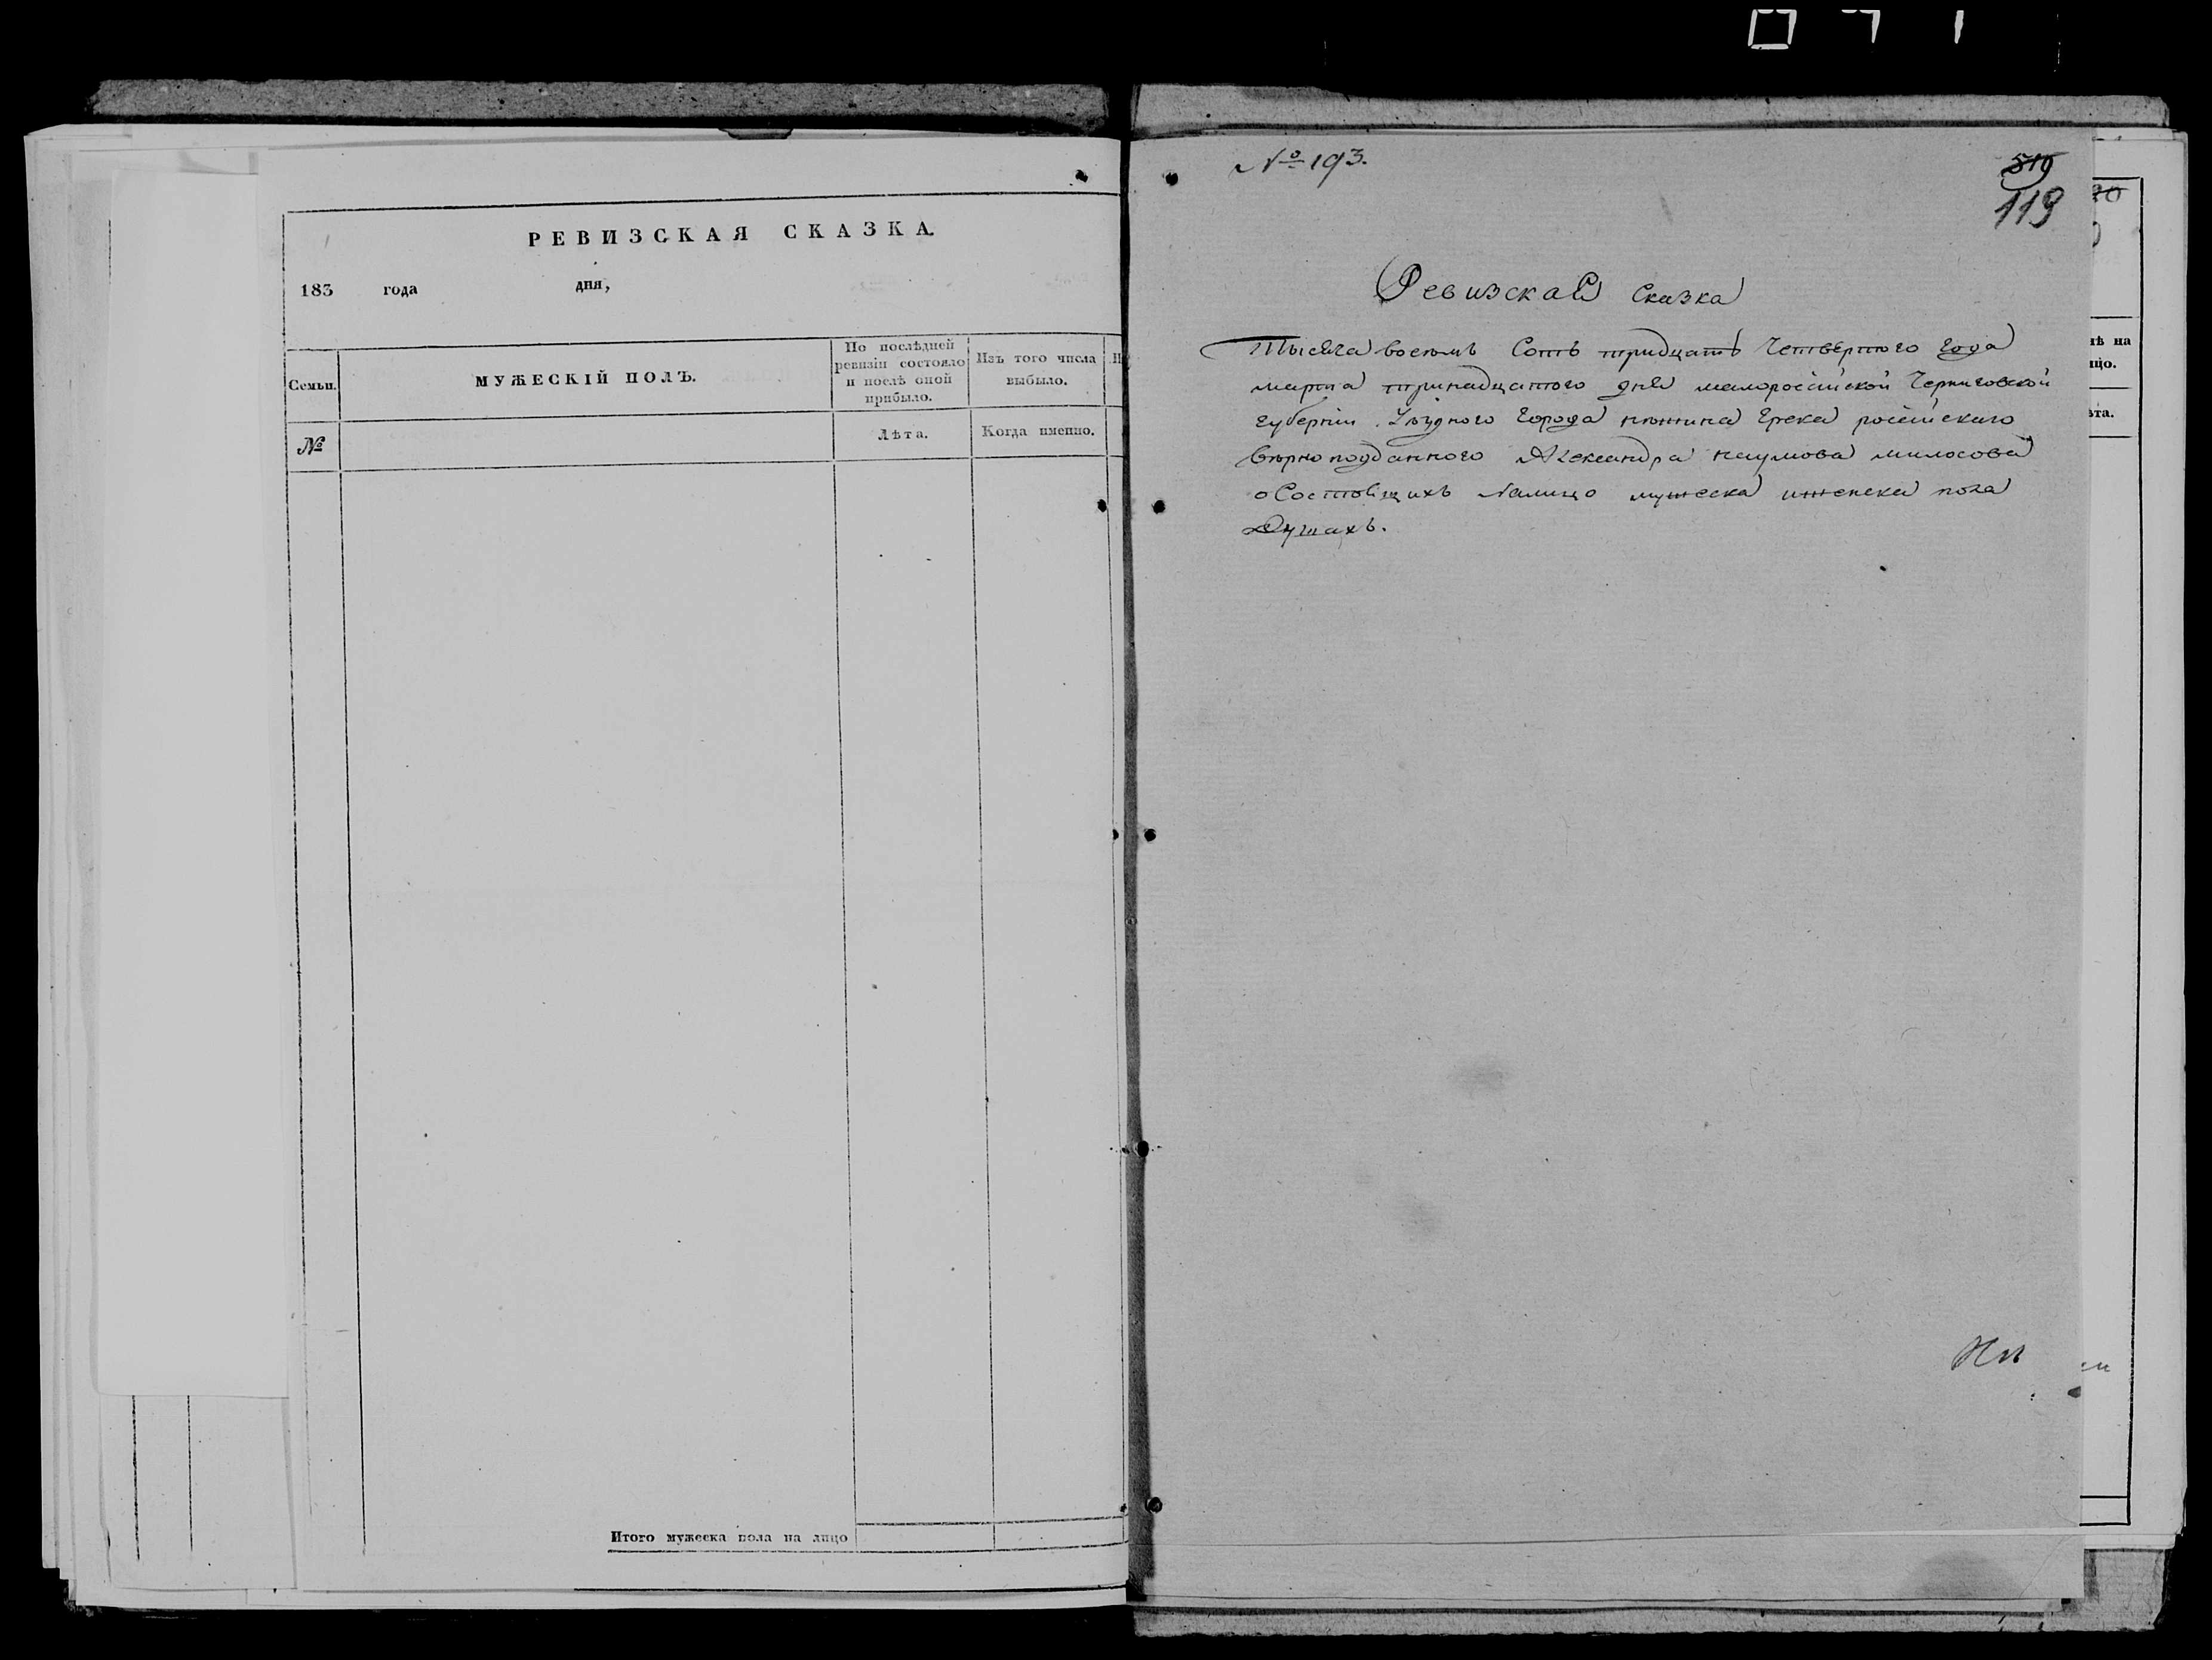 РЕВИЗСКАЯ СКАЗКА.
183 года дня,
Семьи.
МУЖЕСКІЙ ПОЛЪ.
По послѣдней
ревизіи состояло
и послѣ оной
прибыло.
Изъ того числа
выбыло.
№
Лѣта.
Когда именно.
Итого мужеска пола на лицо
№ 193.
519
119
Ревизская Сказка
Тысяча восемь Сотъ тридцатъ Четвертого года
марта тринадцатого дня малоросійской Черниговской
губерніи Уѣзднаго Города нѣжина Грека російскаго
Вѣрноподданного Александра наумова милосова
о Состоящихъ Налицо мужеска иженска пола
Душахъ.
на
та.